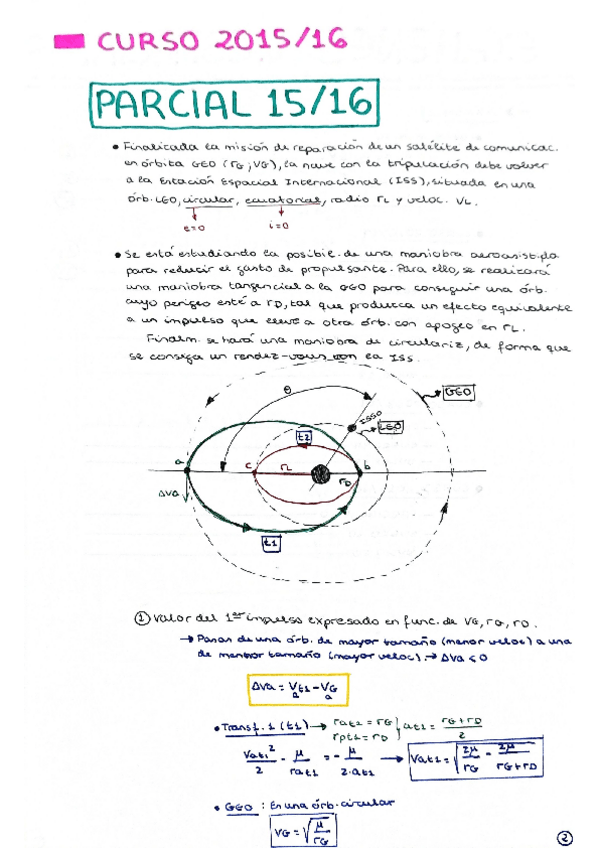 CURSO 2015/16
PARCIAL 15/16
• Finalizada la misión de reparación de un satélite de comunicac.
en órbita GEO (rG; VG), la nave con la tripulación debe volver
a la Estación Espacial Internacional (ISS), situada en una
órb. LEO, circular, ecuatorial, radio rL y veloc. VL.
e=0 i=0
• Se está estudiando la posibie. de una maniobra aeroasistida
para reducir el gasto de propulsante. Para ello, se realizará
una maniobra tangencial a la GEO para conseguir una órb.
cuyo perigeo esté a rD, tal que produzca un efecto equivalente
a un impulso que lleve a otra órb. con apogeo en rL.
Finalm. se hará una maniobra de circulariz, de forma que
se consiga un rendez-vous con la ISS.
θ
GEO
ISSO
LEO
t2
a
c
rL
rD
b
ΔVa
t1
① Valor del 1er impulso expresado en func. de VG, rG, rD.
→ Pasas de una órb. de mayor tamaño (menor veloc) a una
de menor tamaño (mayor veloc). → ΔVa < 0
ΔVa = Vt1 - VG
a a
• Transf. 1 (t1) → rat1 = rG
rpt1 = rD } at1 = rG+rD / 2
Vat1² / 2 - μ / rat1 = - μ / 2·at1 → Vat1 = √(2μ / rG - 2μ / rG+rD)
• GEO : En una órb. circular
VG = √(μ / rG)
2